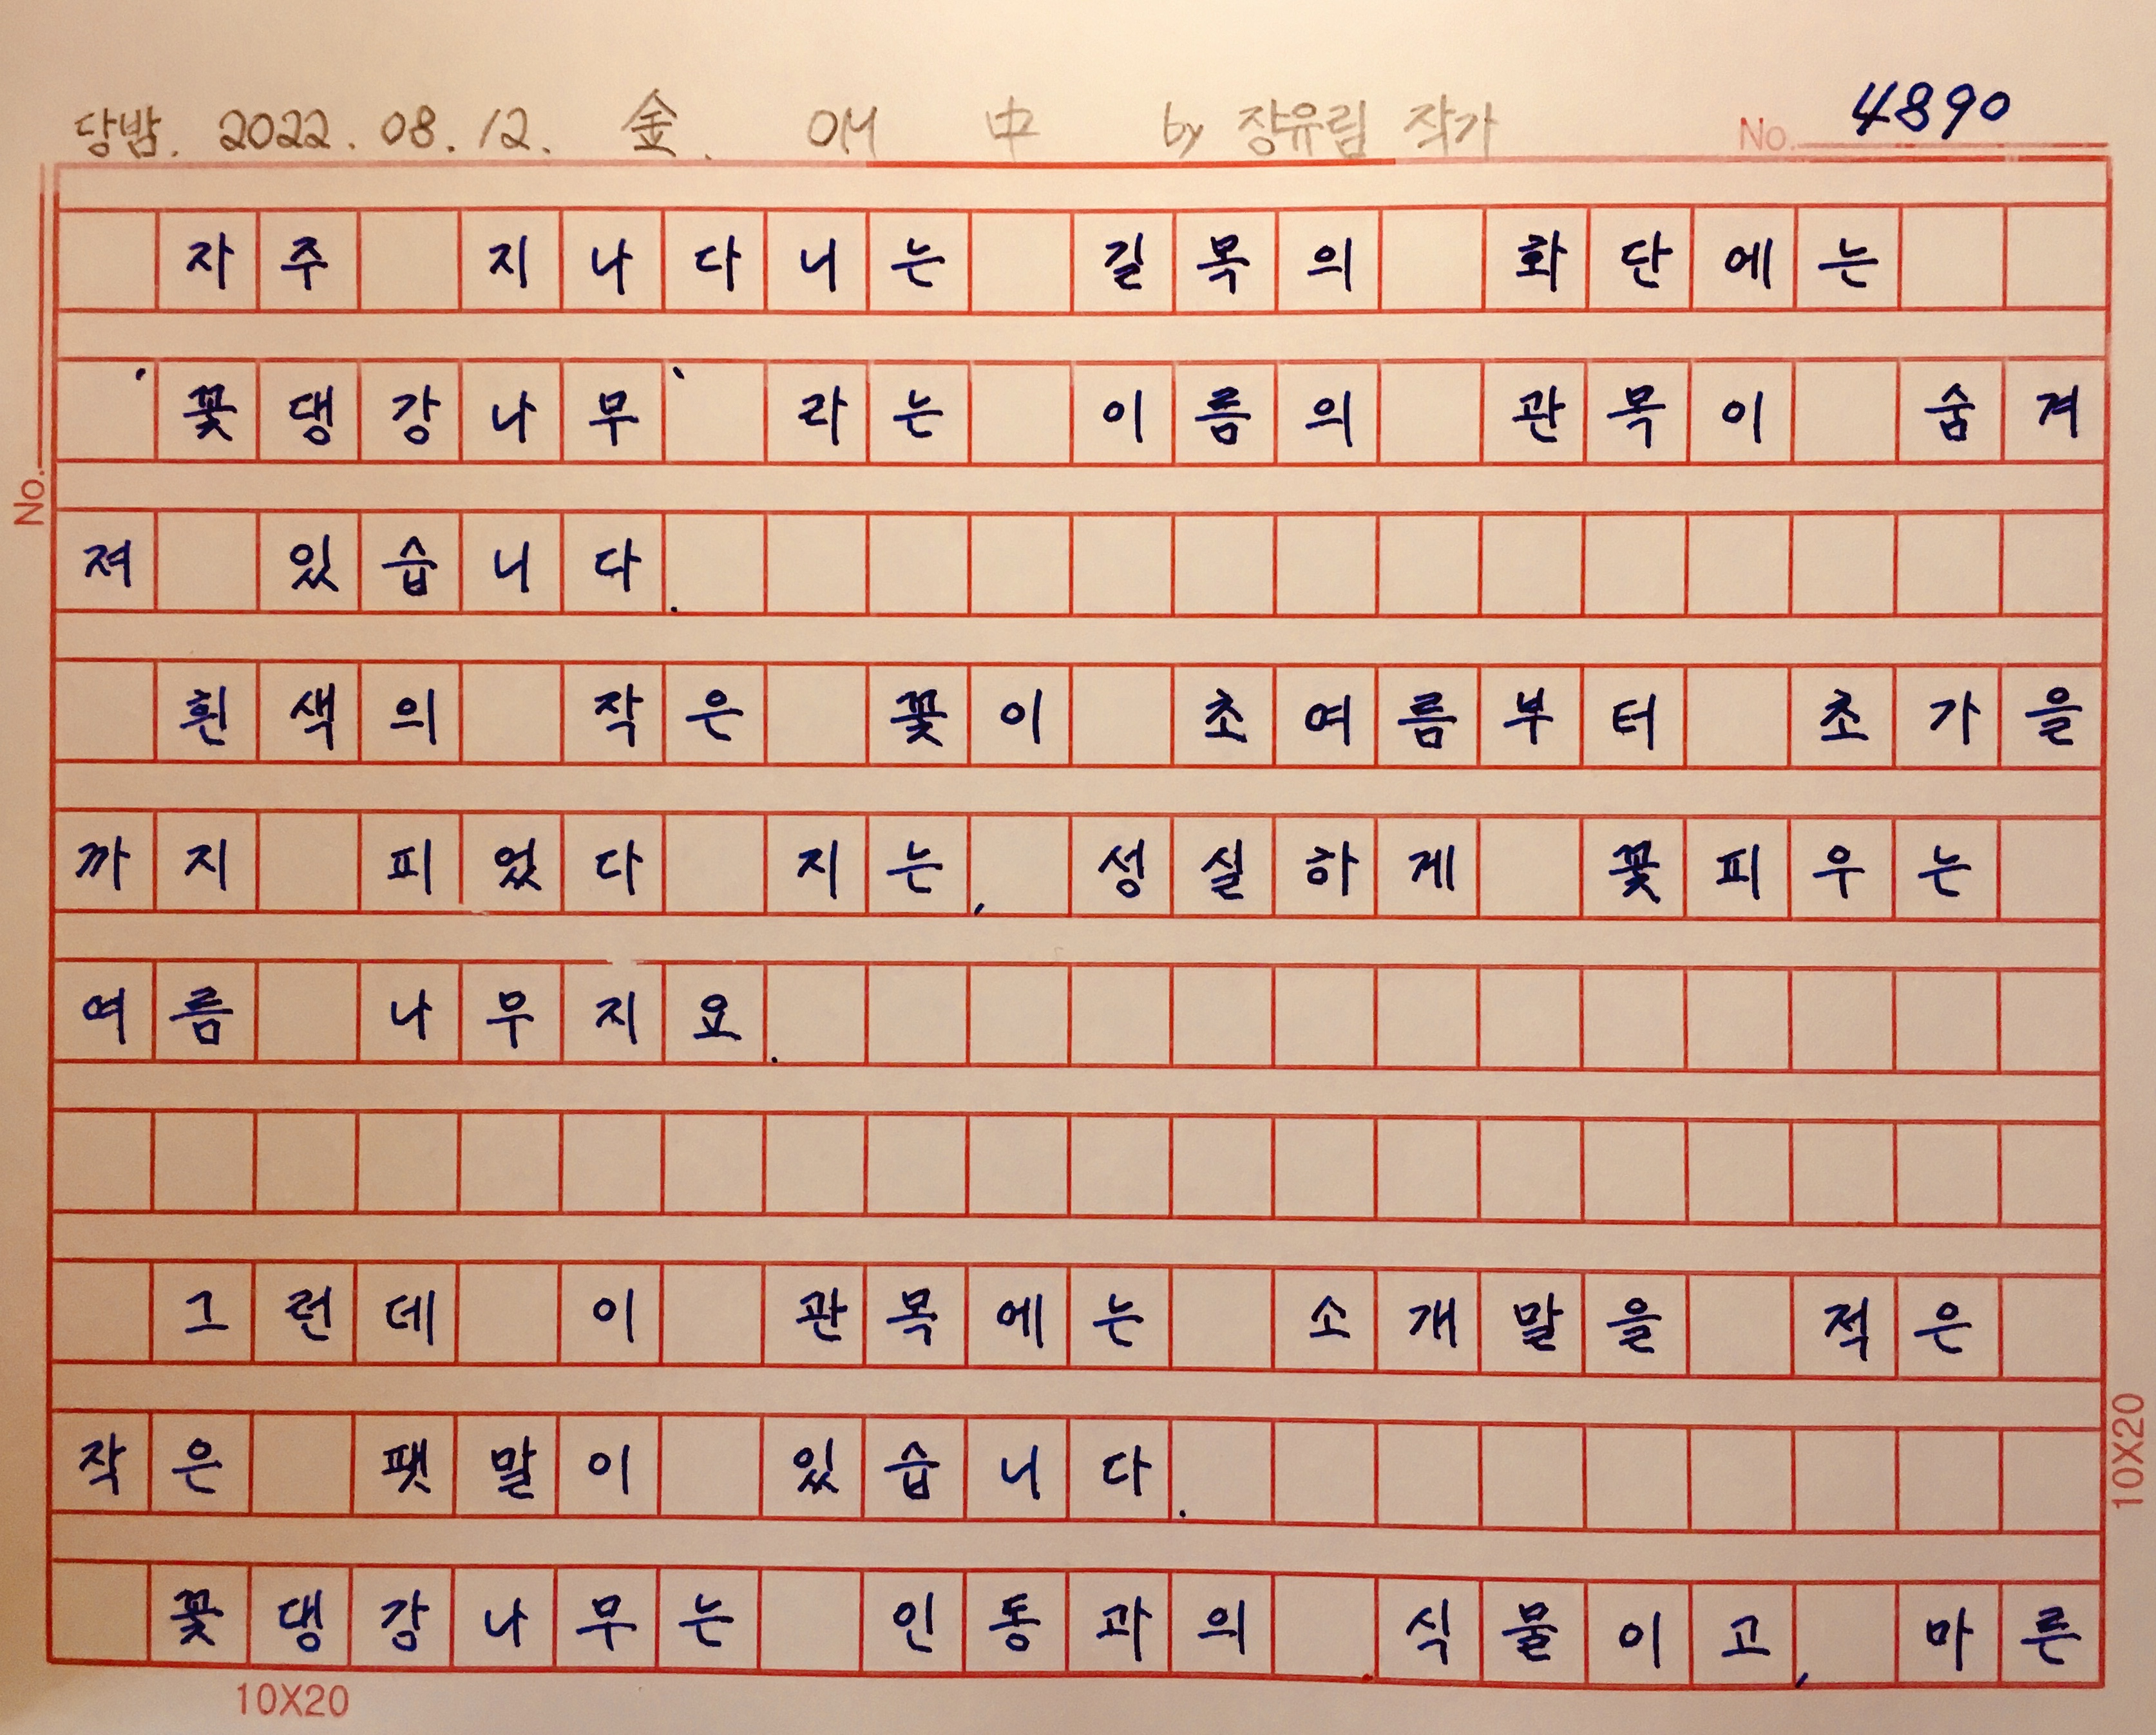 당밤. 2022. 08. 12. 金. OH 中 by 장유림 작가 No. 4890
자주 지나다니는 길목의 화단에는
'꽃댕강나무'라는 이름의 관목이 숨겨
No.
져 있습니다.
흰색의 작은 꽃이 초여름부터 초가을
까지 피었다 지는, 성실하게 꽃피우는
여름 나무지요.
그런데 이 관목에는 소개말을 적은
작은 팻말이 있습니다.
10X20
꽃댕강나무는 인동과의 식물이고, 마른
10X20